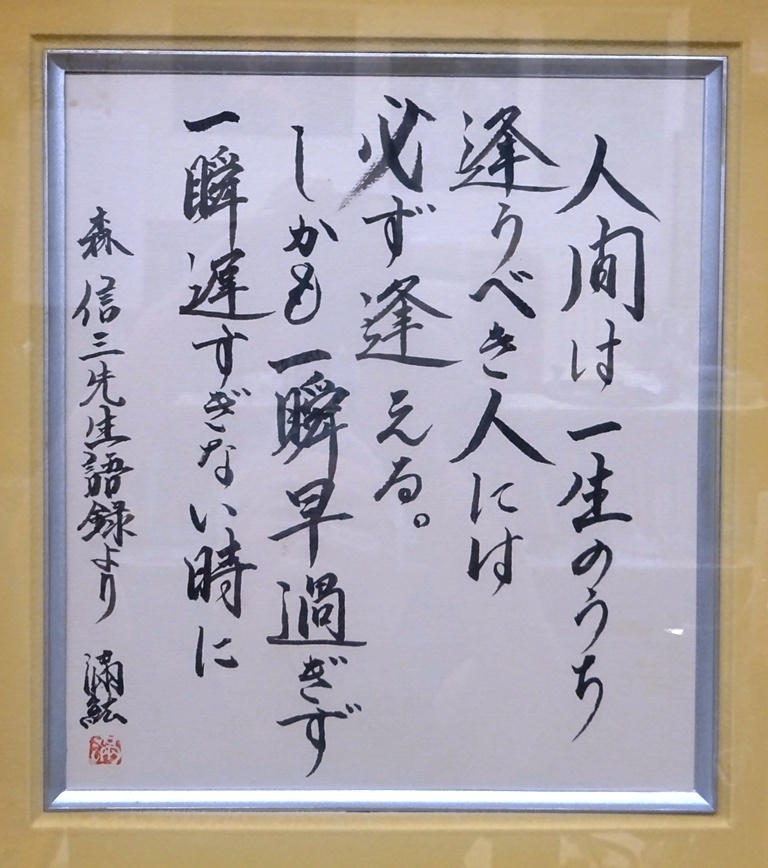 人間は一生のうち
逢うべき人には
必ず逢える。
しかも一瞬早過ぎず
一瞬遅すぎない時に
森信三先生語録より 満紘